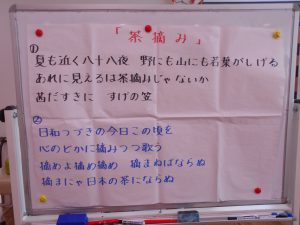 「茶摘み」
①
夏も近く八十八夜 野にも山にも若葉がしげる
あれに見えるは茶摘みじゃないか
茜だすきに すげの笠
②
日和つづきの今日この頃を
心のどかに摘みつつ歌う
摘めよ摘め摘め 摘まねばならぬ
摘まにゃ日本の茶にならぬ